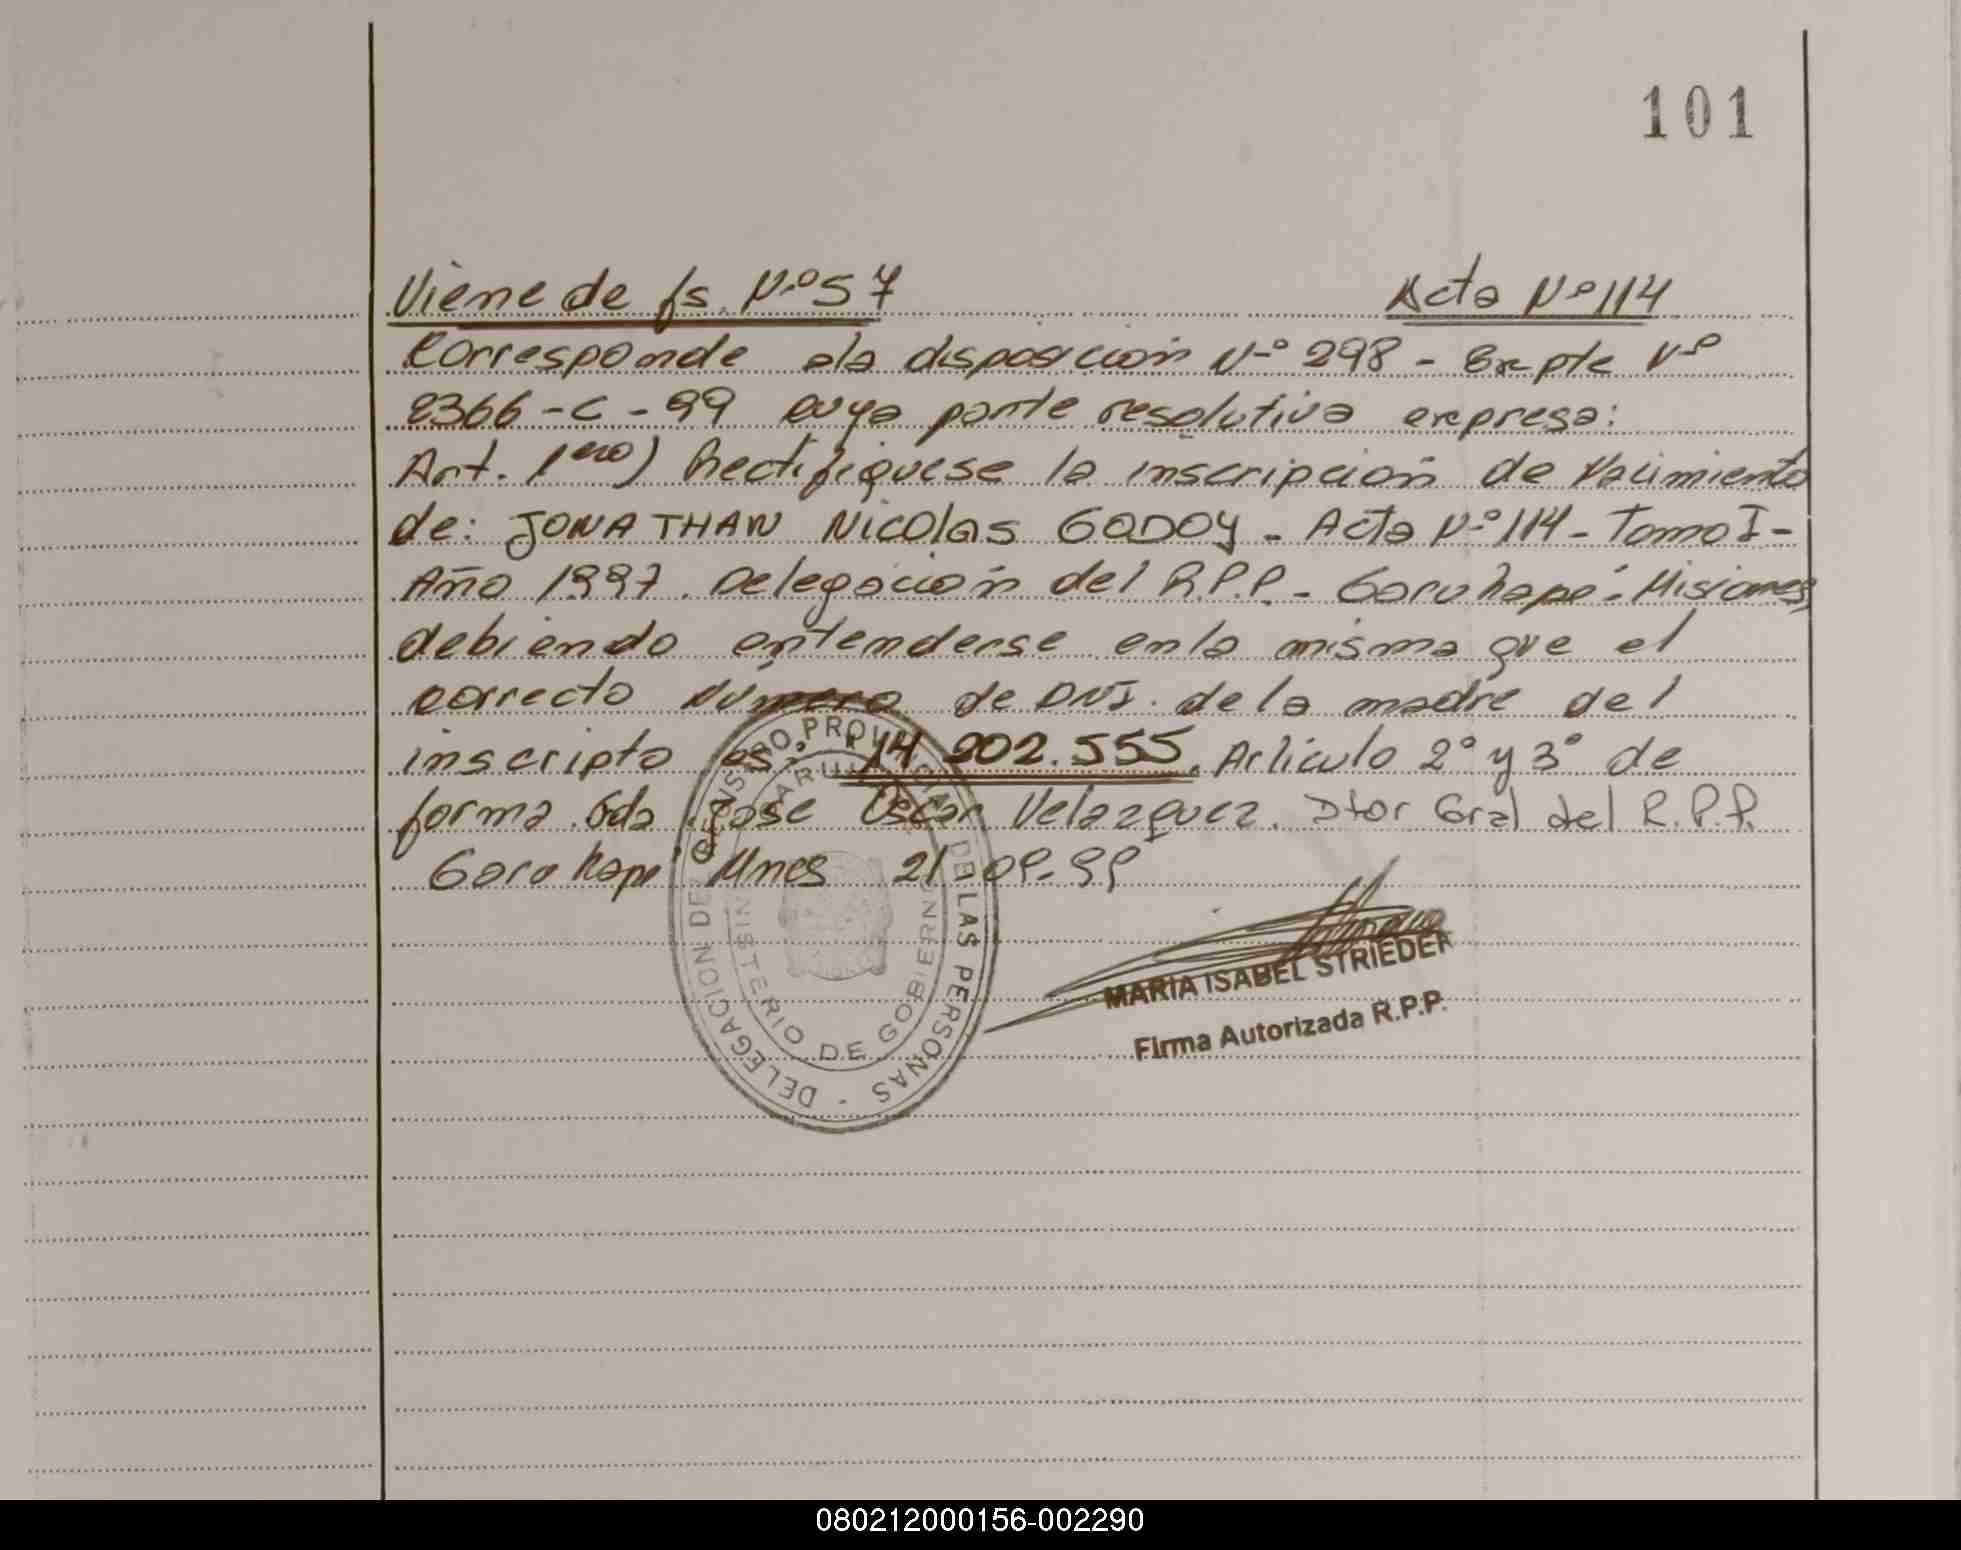 101
Viene de fs. Nº 57 Acta Nº 114
Corresponde a la disposición Nº 298 - Expte Nº
2366 - C - 99 cuya parte resolutiva expresa:
Art. 1ero) Rectifíquese la inscripción de Nacimiento
de: JONATHAN NicOlas GODOY - Acta Nº 114 - Tomo I -
Año 1997. Delegación del R.P.P. - Garuhapé - Misiones,
debiendo entenderse en la misma que el
correcto Número de DNI. de la madre del
inscripto es: "14 202.555. Articulo 2° y 3° de
forma. Fdo Jose Oscar Velazquez. Dtor Gral del R.P.P.
Garuhapé Mnes 21-09-99
DELEGACION DEL REGISTRO PROVINCIAL DE LAS PERSONAS -
MINISTERIO DE GOBIERNO
MARIA ISABEL STRIEDER
Firma Autorizada R.P.P.
080212000156-002290